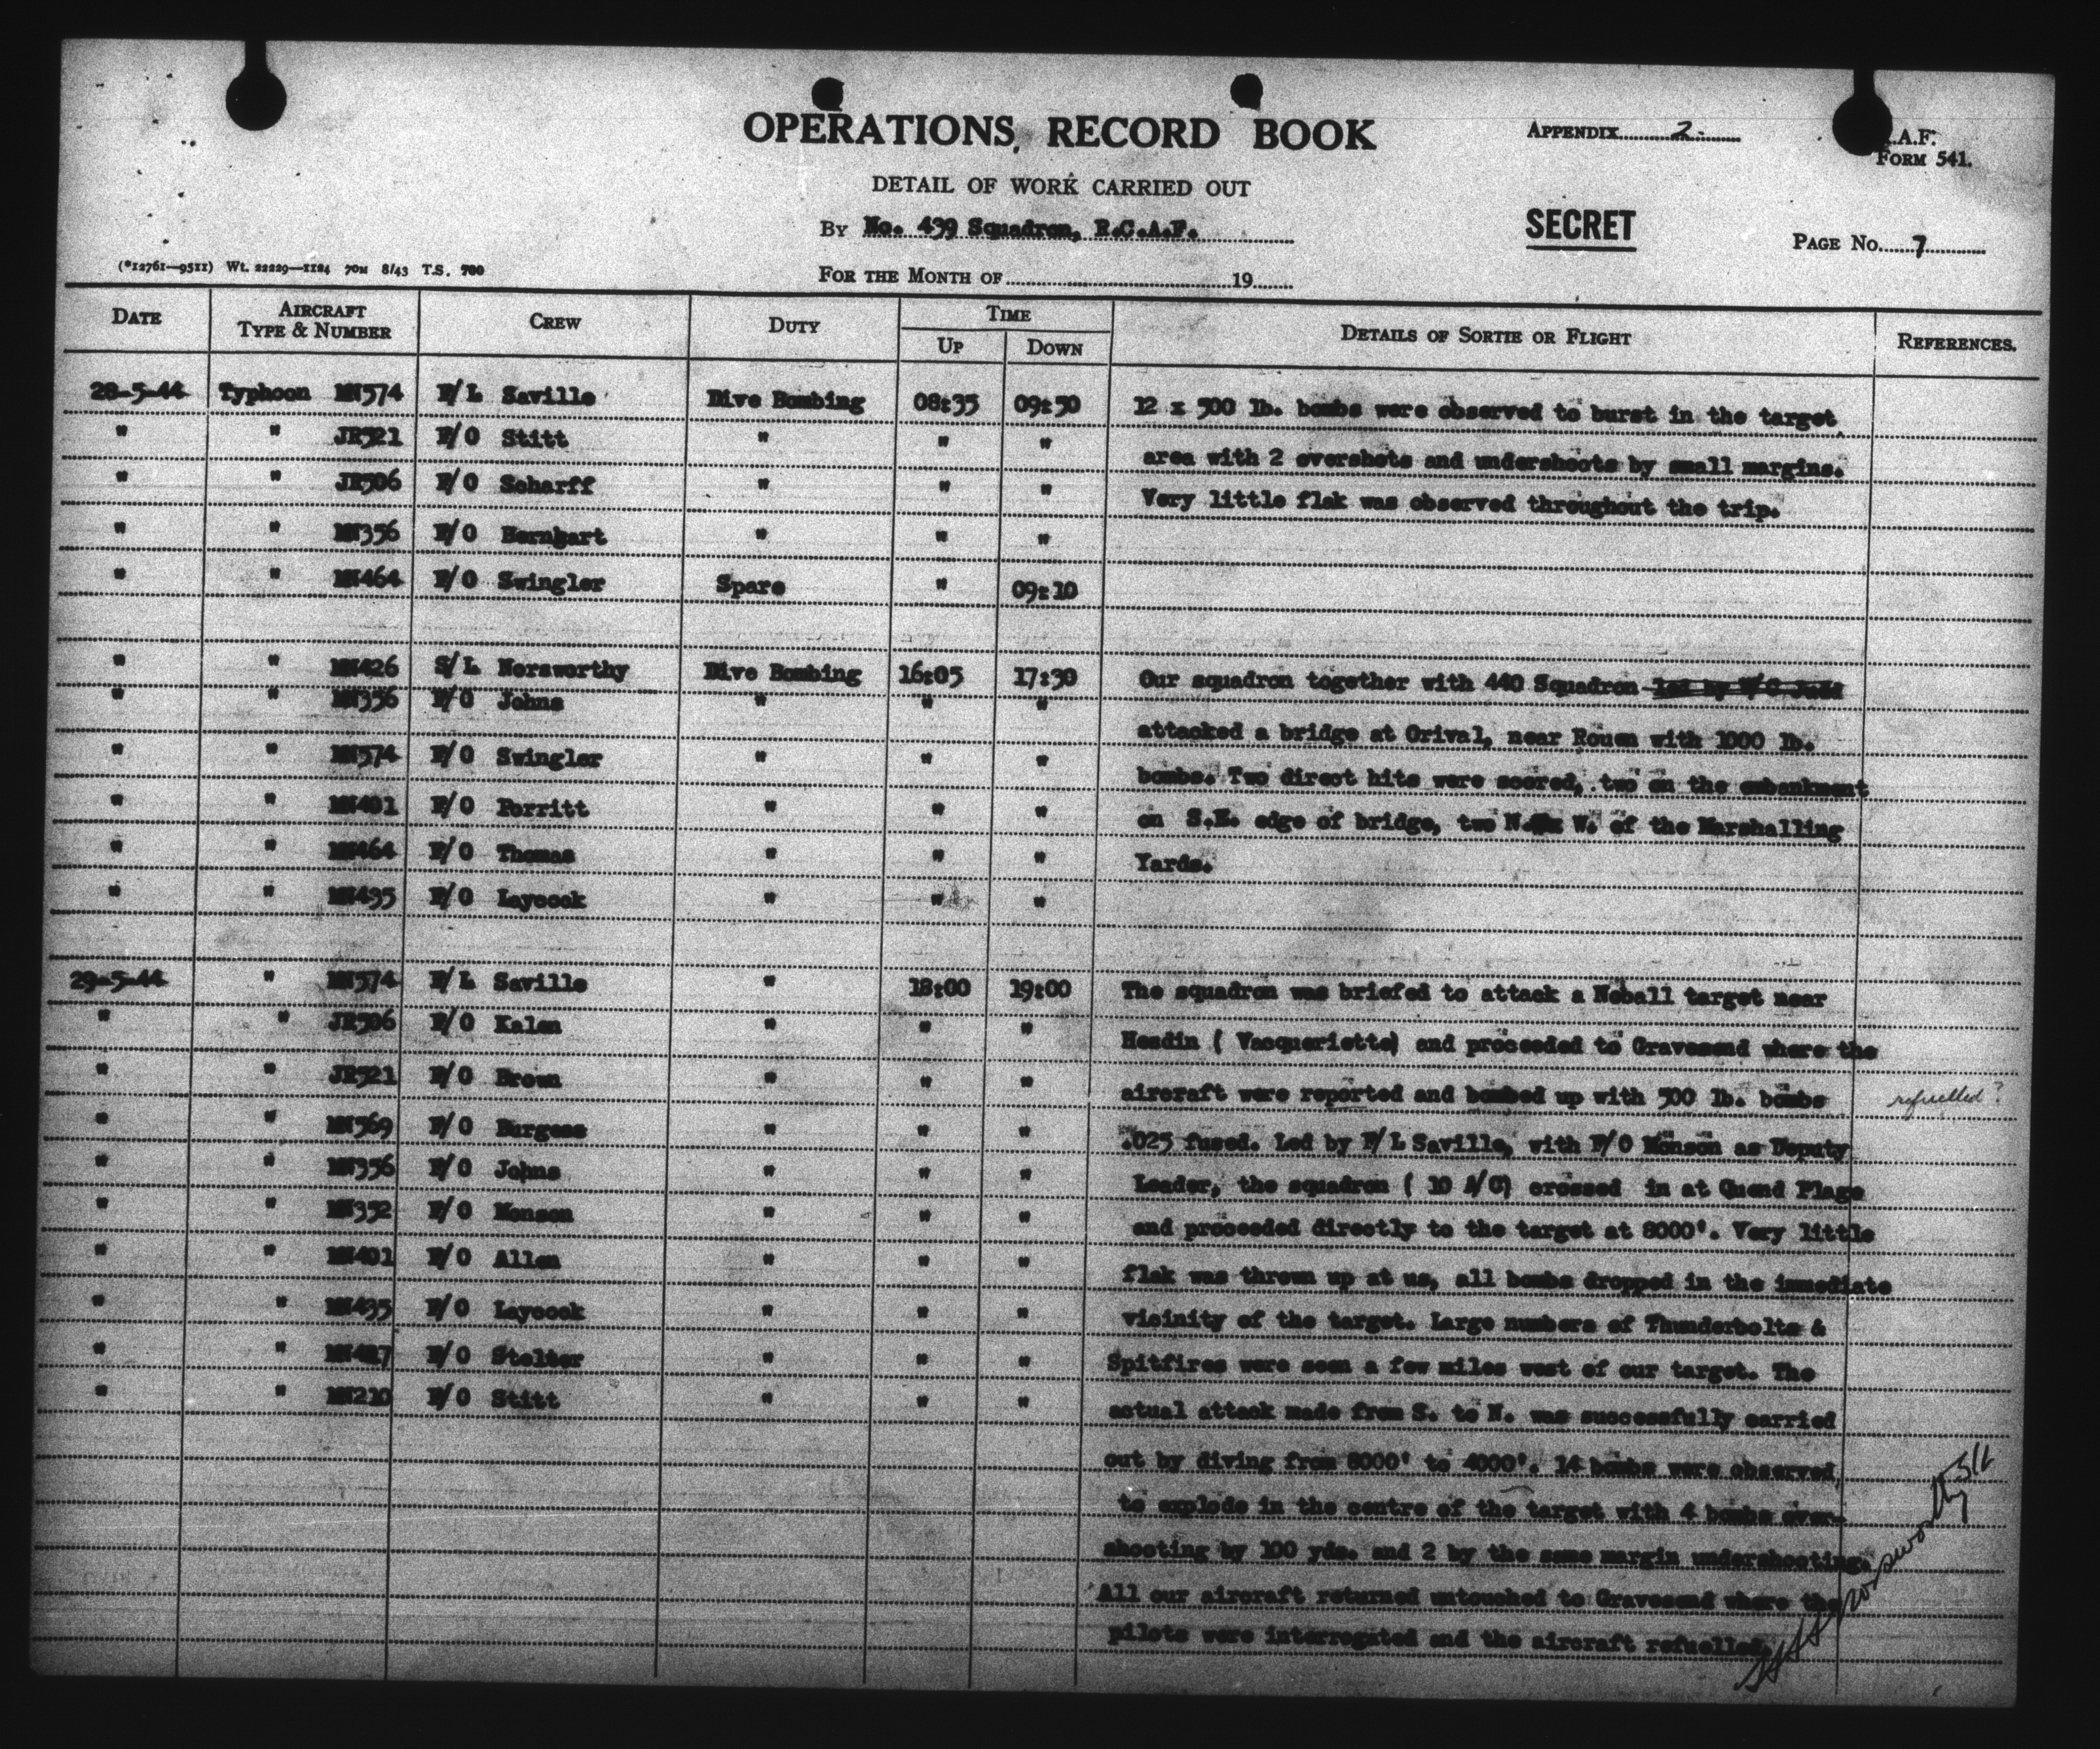 OPERATIONS RECORD BOOK
APPENDIX 2.
.A.F.
FORM 541.
DETAIL OF WORK CARRIED OUT
By No. 439 Squadron, R.C.A.F.
SECRET
PAGE No. 7
(*12761—9511) Wt. 22229—1184 70M 8/43 T.S. 700
FOR THE MONTH OF 19
DATE AIRCRAFT TYPE & NUMBER CREW DUTY TIME UP DOWN DETAILS OF SORTIE OR FLIGHT REFERENCES.
28-5-44 Typhoon MN574 F/L Saville Dive Bombing 08:35 09:50 12 x 500 lb. bombs were observed to burst in the target
" " JR521 F/O Stitt " " " area with 2 overshots and undershoots by small margins.
" " JR506 F/O Scharff " " " Very little flak was observed throughout the trip.
" " MN356 F/O Hernhart " " "
" " MN464 F/O Swingler Spare " 09:10
" " MN426 S/L Norsworthy Dive Bombing 16:05 17:30 Our squadron together with 440 Squadron led by W/C Judd
" " MN356 F/O Johns " " " attacked a bridge at Orival, near Rouen with 1000 lb.
" " MN574 F/O Swingler " " " bombs. Two direct hits were scored, two on the embankment
" " MN401 F/O Porritt " " " on S.E. edge of bridge, two N. W. of the Marshalling
" " MN464 F/O Thomas " " " Yards.
" " MN435 F/O Laycock " " "
29-5-44 " MN574 F/L Saville " 18:00 19:00 The squadron was briefed to attack a Noball target near
" " JR506 F/O Kalen " " " Hesdin ( Vacqueriette) and proceeded to Gravesend where the
" " JR521 F/O Brown " " " aircraft were reported and bombed up with 500 lb. bombs refuelled?
" " MN569 F/O Burgess " " " .025 fused. Led by F/L Saville, with F/O Monson as Deputy
" " MN356 F/O Johns " " " Leader, the squadron ( 10 A/C) crossed in at Quend Plage
" " MN352 F/O Monson " " " and proceeded directly to the target at 8000'. Very little
" " MN401 F/O Allen " " " flak was thrown up at us, all bombs dropped in the immediate
" " MN435 F/O Laycock " " " vicinity of the target. Large numbers of Thunderbolts &
" " F/O Stelter " " " Spitfires were seen a few miles west of our target. The
" " MN210 F/O Stitt " " " actual attack made from S. to N. was successfully carried
out by diving from 8000' to 4000'. 14 bombs were observed
to explode in the centre of the target with 4 bombs over-
shooting by 100 yds. and 2 by the same margin undershooting.
All our aircraft returned untouched to Gravesend where the
pilots were interrogated and the aircraft refuelled.
Norsworthy S/L